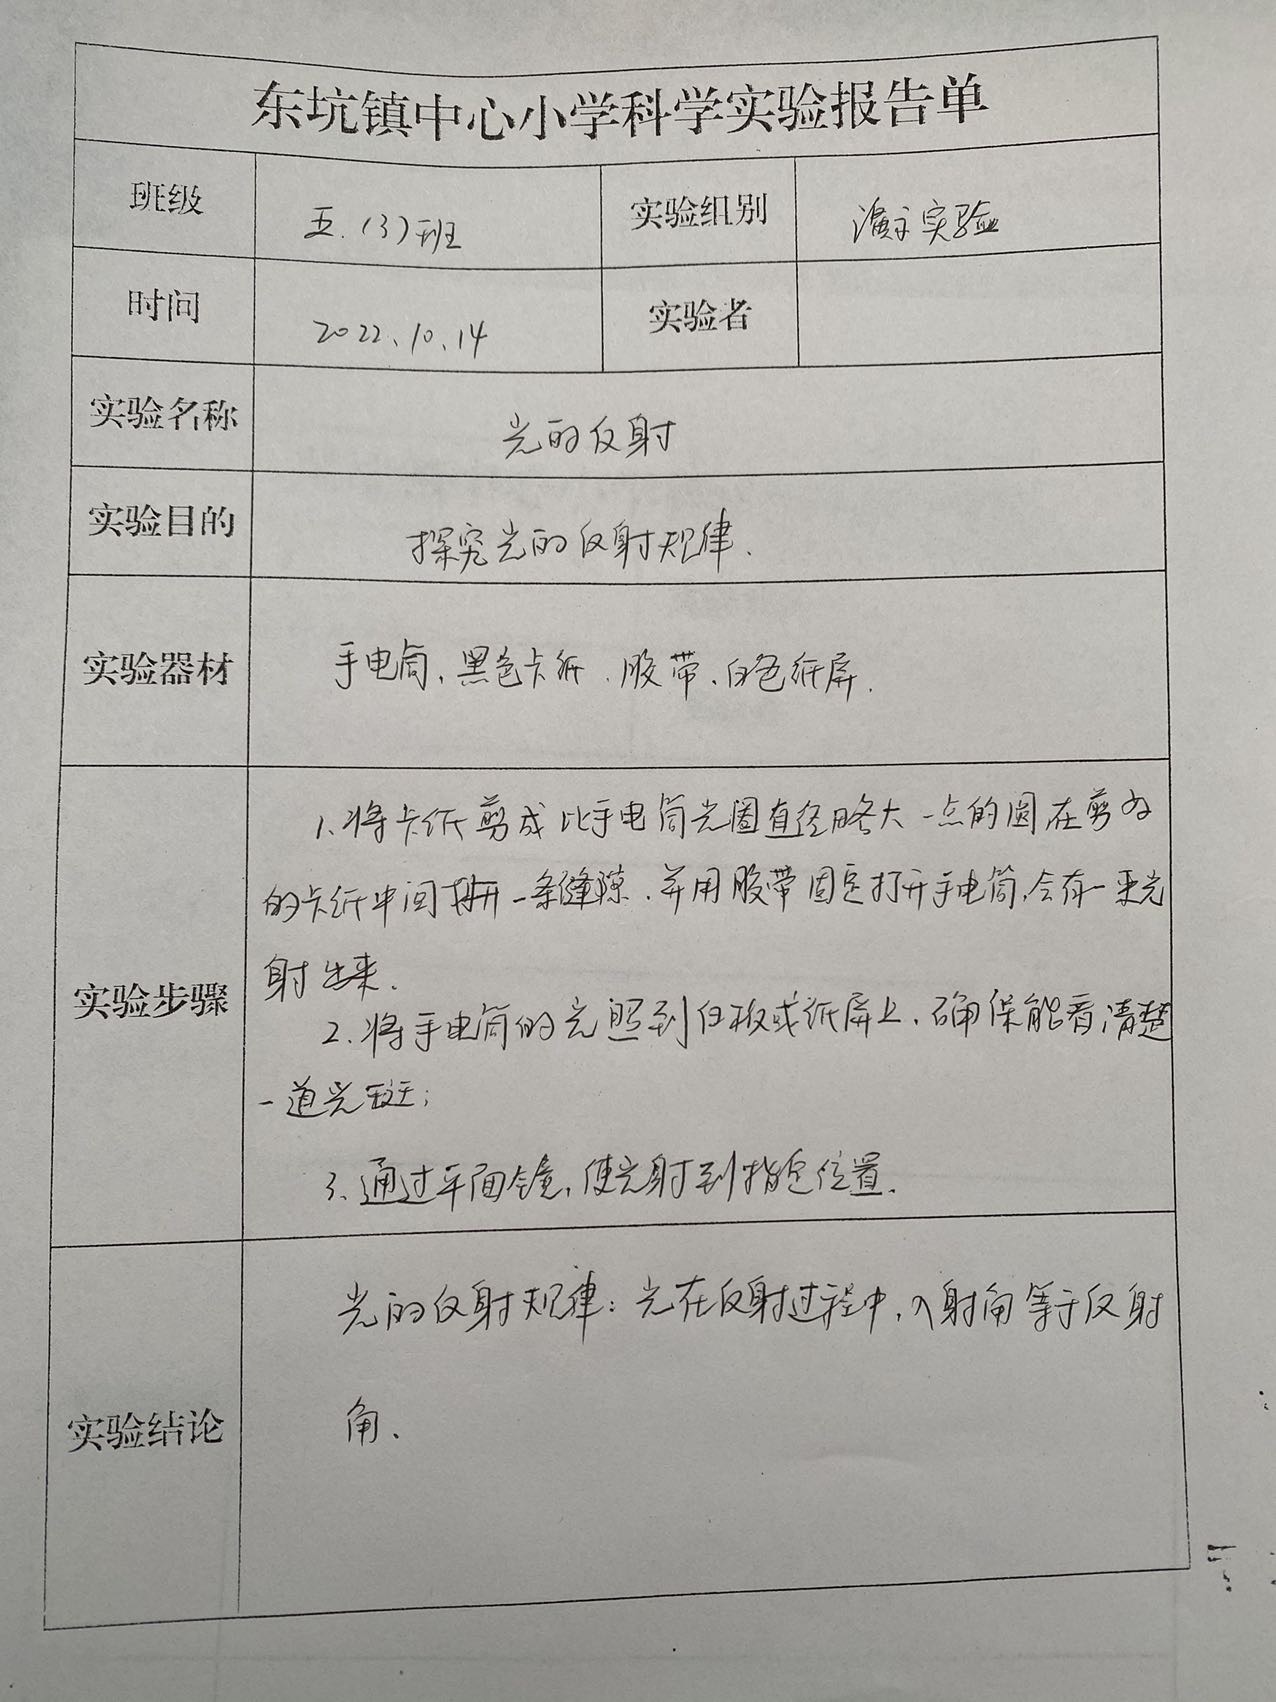 东坑镇中心小学科学实验报告单
班级 五.（3）班 实验组别 演示实验
时间 2022.10.14 实验者
实验名称 光的反射
实验目的 探究光的反射规律.
实验器材 手电筒、黑色卡纸、胶带、白色纸屏.
实验步骤
1.将卡纸剪成比手电筒光圈直径略大一点的圆在剪好
的卡纸中间 一条缝隙.并用胶带固定打开手电筒,会有一束光
射出来.
2.将手电筒的光照到白板或纸屏上,确保能看清楚
一道光斑;
3.通过平面镜,使光射到指定位置.
实验结论
光的反射规律:光在反射过程中,入射角等于反射
角.